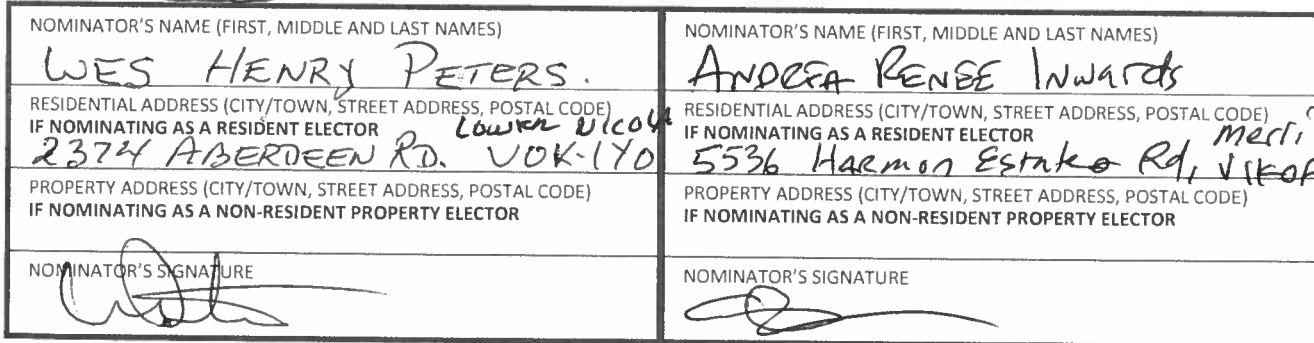 NOMINATOR'S NAME (FIRST, MIDDLE AND LAST NAMES)
WES HENRY PETERS.
RESIDENTIAL ADDRESS (CITY/TOWN, STREET ADDRESS, POSTAL CODE)
IF NOMINATING AS A RESIDENT ELECTOR
LOWER NICOLA
2374 ABERDEEN RD. V0K-1Y0
PROPERTY ADDRESS (CITY/TOWN, STREET ADDRESS, POSTAL CODE)
IF NOMINATING AS A NON-RESIDENT PROPERTY ELECTOR
NOMINATOR'S SIGNATURE
NOMINATOR'S NAME (FIRST, MIDDLE AND LAST NAMES)
ANDREA RENEE Inwards
RESIDENTIAL ADDRESS (CITY/TOWN, STREET ADDRESS, POSTAL CODE)
IF NOMINATING AS A RESIDENT ELECTOR
Merri
5536 Harmon Estates Rd,
PROPERTY ADDRESS (CITY/TOWN, STREET ADDRESS, POSTAL CODE)
IF NOMINATING AS A NON-RESIDENT PROPERTY ELECTOR
NOMINATOR'S SIGNATURE